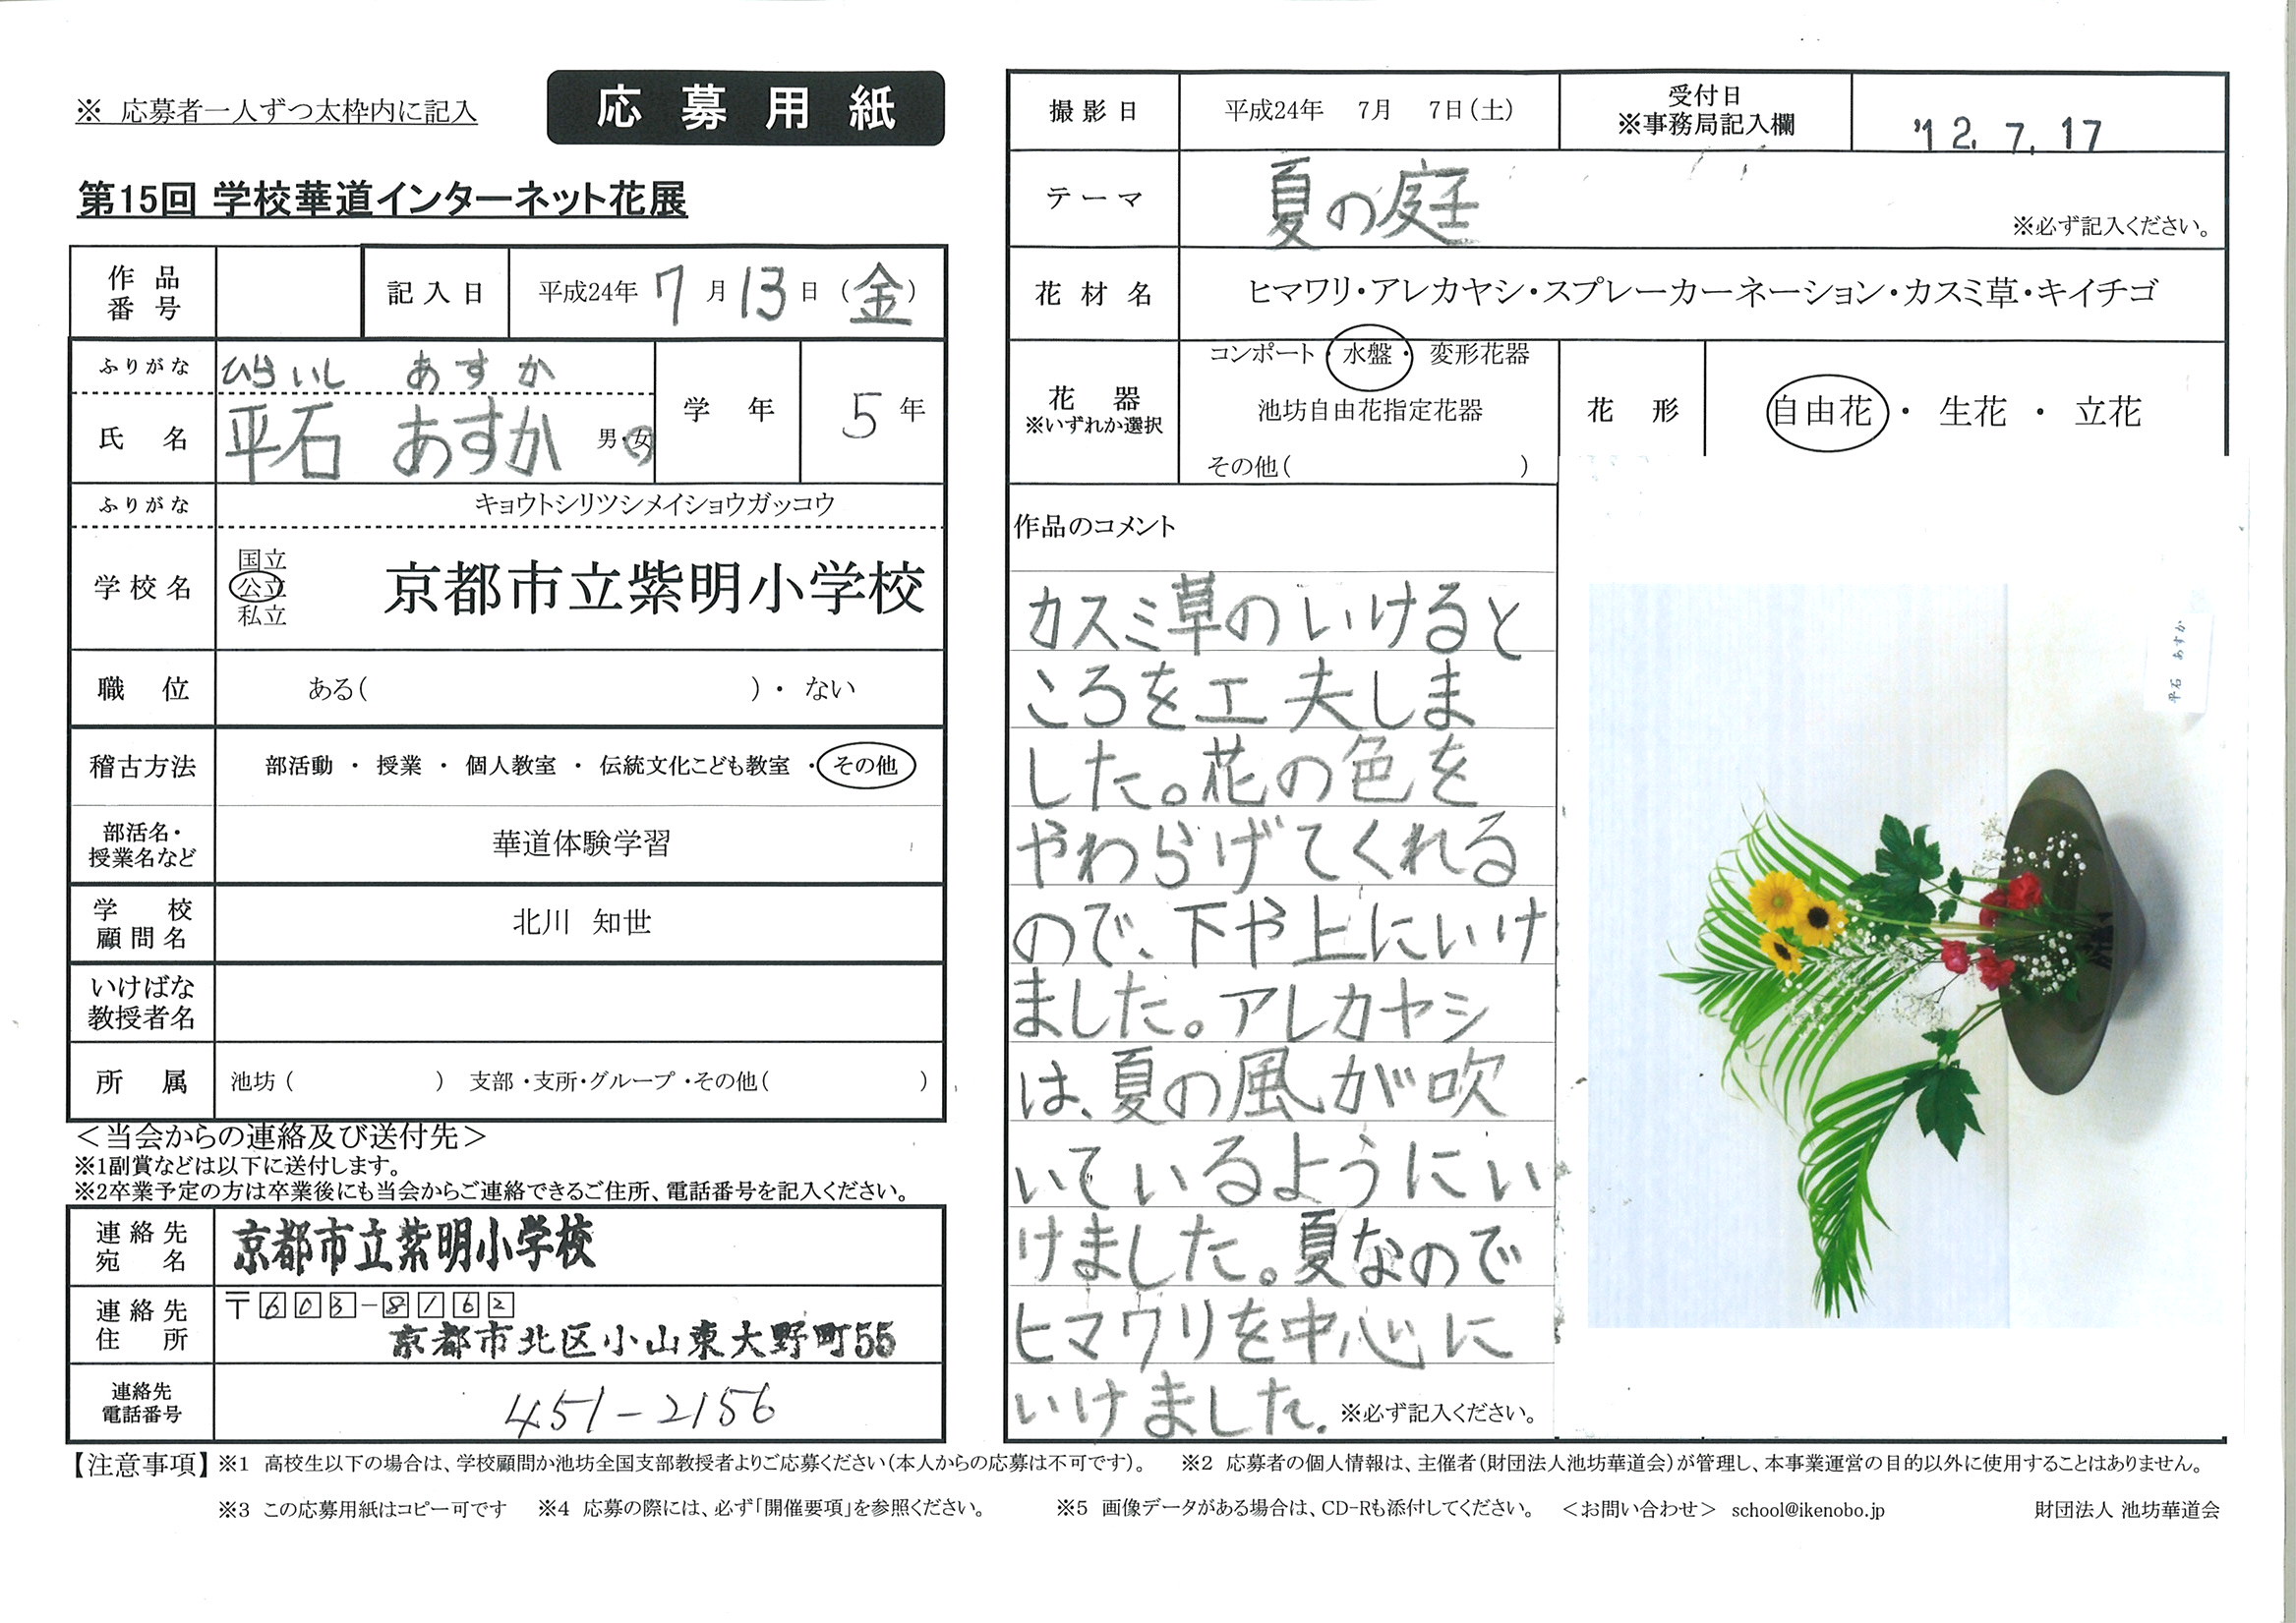 ※ 応募者一人ずつ太枠内に記入
応募用紙
第15回 学校華道インターネット花展
作品番号
記入日 平成24年 7月 13日(金)
ふりがな ひらいし あすか
氏名 平石 あすか 男・女
学年 5年
ふりがな キョウトシリツシメイショウガッコウ
学校名 国立 公立 私立 京都市立紫明小学校
職位 ある( )・ ない
稽古方法 部活動 ・ 授業 ・ 個人教室 ・ 伝統文化こども教室 ・その他
部活名・授業名など 華道体験学習
学校顧問名 北川 知世
いけばな教授者名
所属 池坊( ) 支部・支所・グループ・その他( )
<当会からの連絡及び送付先>
※1副賞などは以下に送付します。
※2卒業予定の方は卒業後にも当会からご連絡できるご住所、電話番号を記入ください。
連絡先宛名 京都市立紫明小学校
連絡先住所 〒603-8162
京都市北区小山東大野町55
連絡先電話番号 451-2156
撮影日 平成24年 7月 7日(土)
受付日 ※事務局記入欄 '12.7.17
テーマ 夏の庭 ※必ず記入ください。
花材名 ヒマワリ・アレカヤシ・スプレーカーネーション・カスミ草・キイチゴ
花器 ※いずれか選択
コンポート・水盤・変形花器
池坊自由花指定花器
その他( )
花形 自由花 ・ 生花 ・ 立花
作品のコメント
カスミ草のいけると
ころを工夫しま
した。花の色を
やわらげてくれる
ので、下や上にいけ
ました。アレカヤシ
は、夏の風が吹
いているようにい
けました。夏なので
ヒマワリを中心に
いけました。
※必ず記入ください。
平石 あすか
【注意事項】 ※1 高校生以下の場合は、学校顧問か池坊全国支部教授者よりご応募ください(本人からの応募は不可です)。 ※2 応募者の個人情報は、主催者(財団法人池坊華道会)が管理し、本事業運営の目的以外に使用することはありません。
※3 この応募用紙はコピー可です ※4 応募の際には、必ず「開催要項」を参照ください。 ※5 画像データがある場合は、CD-Rも添付してください。 <お問い合わせ> school@ikenobo.jp 財団法人 池坊華道会